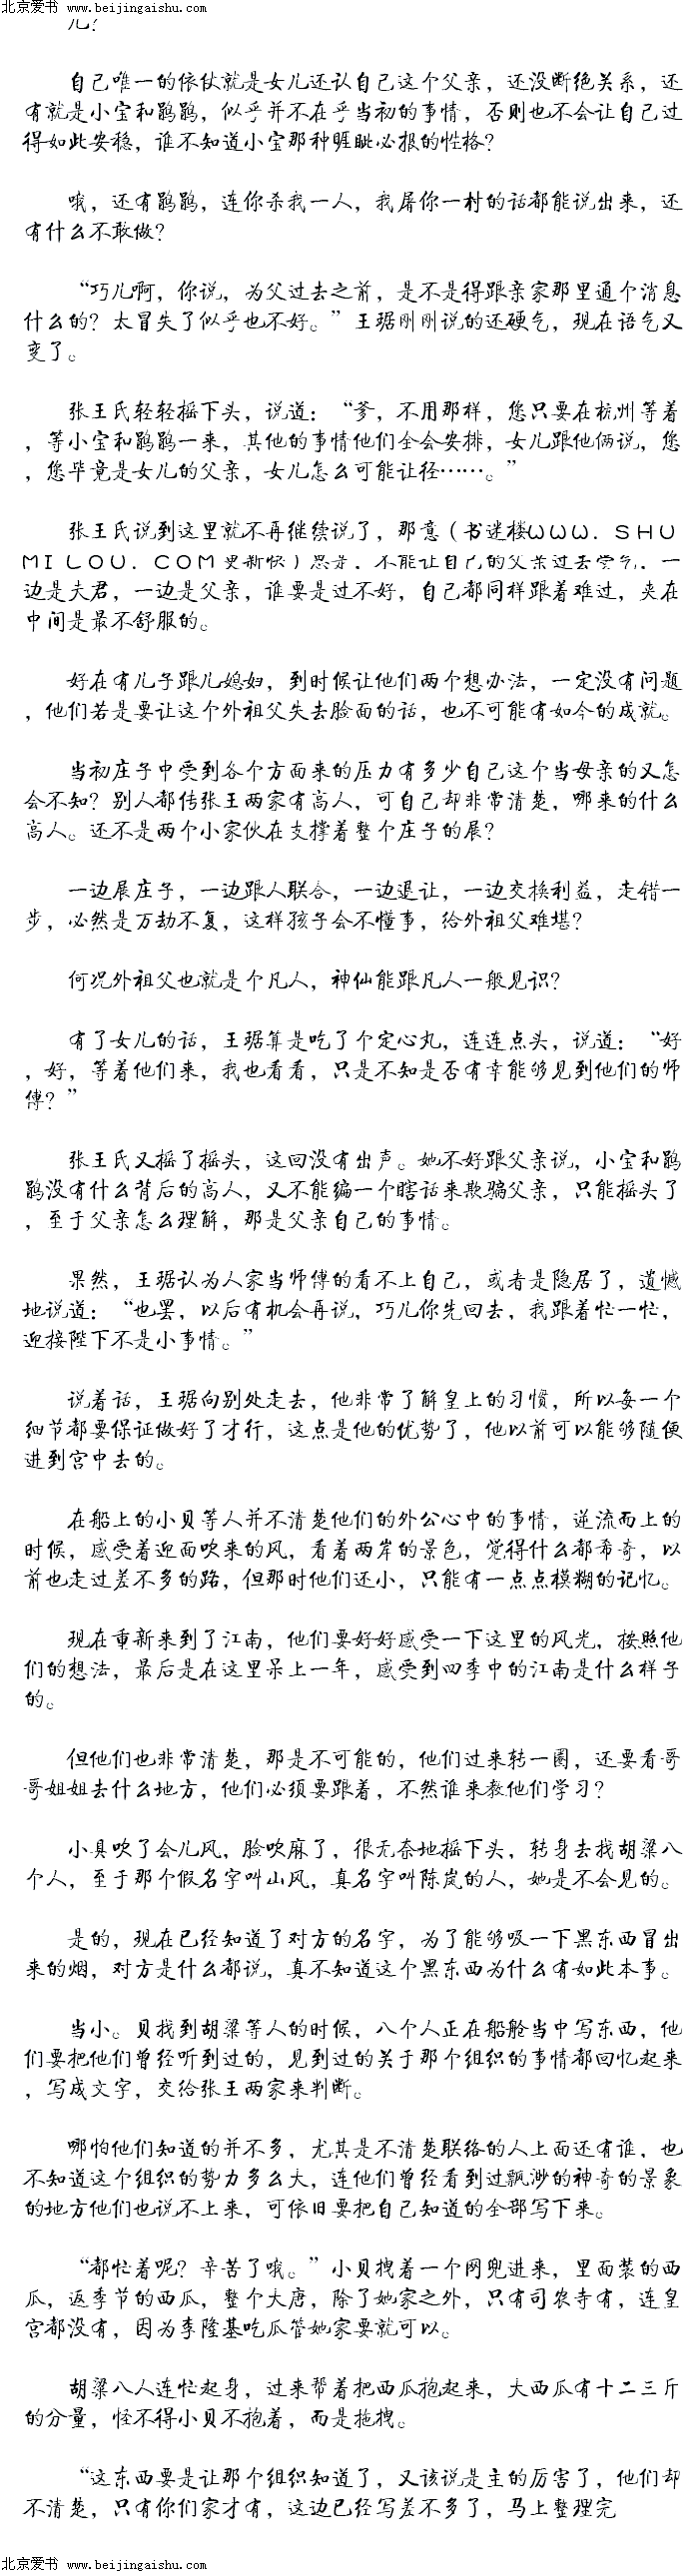 北京爱书 www.beijingaishu.com
儿？
自己唯一的依仗就是女儿还认自己这个父亲，还没断绝关系，还
有就是小宝和鹃鹃，似乎并不在乎当初的事情，否则也不会让自己过
得如此安稳，谁不知道小宝那种睚眦必报的性格？
哦，还有鹃鹃，连你杀我一人，我屠你一村的话都能说出来，还
有什么不敢做？
“巧儿啊，你说，为父过去之前，是不是得跟亲家那里通个消息
什么的？太冒失了似乎也不好。”王琚刚刚说的还硬气，现在语气又
变了。
张王氏轻轻摇下头，说道：“爹，不用那样，您只要在杭州等着
，等小宝和鹃鹃一来，其他的事情他们全会安排，女儿跟他俩说，您
，您毕竟是女儿的父亲，女儿怎么可能让径……。”
张王氏说到这里就不再继续说了，那意（书迷楼ＷＷＷ．ＳＨＵ
ＭＩＬＯＵ．ＣＯＭ更新快）思是，不能让自己的父亲过去受气，一
边是夫君，一边是父亲，谁要是过不好，自己都同样跟着难过，夹在
中间是最不舒服的。
好在有儿子跟儿媳妇，到时候让他们两个想办法，一定没有问题
，他们若是要让这个外祖父失去脸面的话，也不可能有如今的成就。
当初庄子中受到各个方面来的压力有多少自己这个当母亲的又怎
会不知？别人都传张王两家有高人，可自己却非常清楚，哪来的什么
高人。还不是两个小家伙在支撑着整个庄子的展？
一边展庄子，一边跟人联合，一边退让，一边交换利益，走错一
步，必然是万劫不复，这样孩子会不懂事，给外祖父难堪？
何况外祖父也就是个凡人，神仙能跟凡人一般见识？
有了女儿的话，王琚算是吃了个定心丸，连连点头，说道：“好
，好，等着他们来，我也看看，只是不知是否有幸能够见到他们的师
傅？”
张王氏又摇了摇头，这回没有出声。她不好跟父亲说，小宝和鹃
鹃没有什么背后的高人，又不能编一个瞎话来欺骗父亲，只能摇头了
，至于父亲怎么理解，那是父亲自己的事情。
果然，王琚认为人家当师傅的看不上自己，或者是隐居了，遗憾
地说道：“也罢，以后有机会再说，巧儿你先回去，我跟着忙一忙，
迎接陛下不是小事情。”
说着话，王琚向别处走去，他非常了解皇上的习惯，所以每一个
细节都要保证做好了才行，这点是他的优势了，他以前可以能够随便
进到宫中去的。
在船上的小贝等人并不清楚他们的外公心中的事情，逆流而上的
时候，感受着迎面吹来的风，看着两岸的景色，觉得什么都希奇，以
前也走过差不多的路，但那时他们还小，只能有一点点模糊的记忆。
现在重新来到了江南，他们要好好感受一下这里的风光，按照他
们的想法，最后是在这里呆上一年，感受到四季中的江南是什么样子
的。
但他们也非常清楚，那是不可能的，他们过来转一圈，还要看哥
哥姐姐去什么地方，他们必须要跟着，不然谁来教他们学习？
小具吹了会儿风，脸吹麻了，很无奈地摇下头，转身去找胡梁八
个人，至于那个假名字叫山风，真名字叫陈岚的人，她是不会见的。
是的，现在已经知道了对方的名字，为了能够吸一下黑东西冒出
来的烟，对方是什么都说，真不知道这个黑东西为什么有如此本事。
当小。贝找到胡梁等人的时候，八个人正在船舱当中写东西，他
们要把他们曾经听到过的，见到过的关于那个组织的事情都回忆起来
，写成文字，交给张王两家来判断。
哪怕他们知道的并不多，尤其是不清楚联络的人上面还有谁，也
不知道这个组织的势力多么大，连他们曾经看到过飘渺的神奇的景象
的地方他们也说不上来，可依旧要把自己知道的全部写下来。
“都忙着呢？辛苦了哦。”小贝拽着一个网兜进来，里面装的西
瓜，返季节的西瓜，整个大唐，除了她家之外，只有司农寺有，连皇
宫都没有，因为李隆基吃瓜管她家要就可以。
胡梁八人连忙起身，过来帮着把西瓜抱起来，大西瓜有十二三斤
的分量，怪不得小贝不抱着，而是拖拽。
“这东西要是让那个组织知道了，又该说是主的厉害了，他们却
不清楚，只有你们家才有，这边已经写差不多了，马上整理完
北京爱书 www.beijingaishu.com